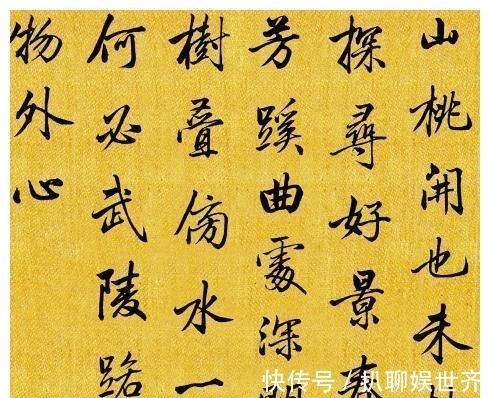 山桃開也未
探尋好景
芳蹊曲處深
樹疊傍水一
何必武陵路
物外心
快传号/扒聊娱世齐